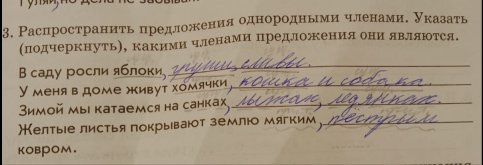 3. Распространить предложения однородными членами. Указать
(подчеркнуть), какими членами предложения они являются.
В саду росли яблоки, груши, сливы.
У меня в доме живут хомячки, кошка и собака.
Зимой мы катаемся на санках, лыжах, ледянках.
Желтые листья покрывают землю мягким, пёстрым
ковром.